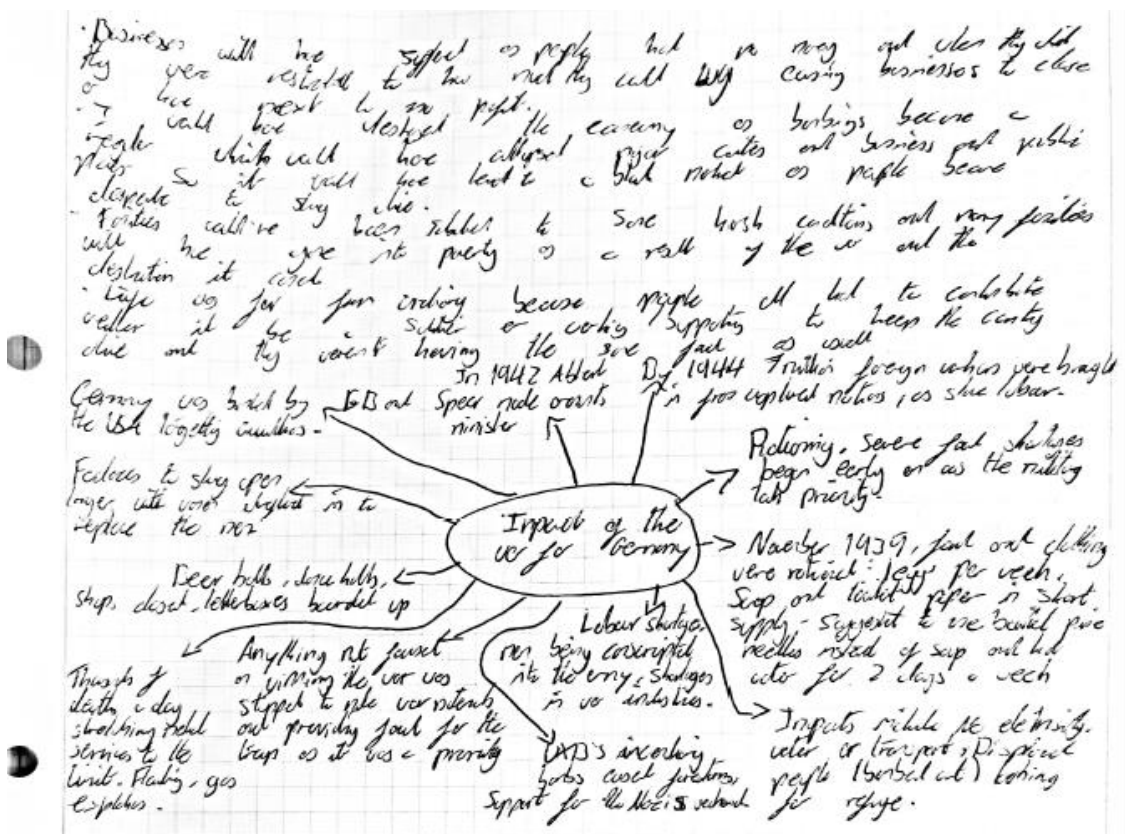 · Businesses will have suffered as people had no money and when they did
they were restricted to how much they could buy causing businesses to close
or have next to no profit.
would have destroyed the economy as bombings became a
regular which would have collapsed major cities and business and public
places. So it would have lead to a black market as people became
desperate to stay alive.
· Families have been to some harsh conditions and many families
will have gone into poverty as a result of the war and the
destruction it caused
· Life was far from ordinary because people all had to contribute
weather it be a soldier or working supporting to keep the country
alive and they weren't having the same food as usual
In 1942 Albert
Speer made armaments
minister
By 1944 7 million foreign workers were brought
in from captured nations, as slave labour.
Germany was bombed by GB and
the USA targetting
Factories to stay open
longer, with women in to
replace the men
Beer halls, dance halls,
shops closed, letterboxes boarded up
Thousands of
deaths a day
stretching medical
services to the
limit. Flooding, gas
explosions.
Anything not focused
on winning the war was
stopped to make war materials
and providing food for the
troops as it was a priority
Impact of the
war for Germany
Labour shortage.
men being conscripted
into the army, shortages
in war industries.
increasing
bombs caused
Support for the Nazis weakened
Rationing. Severe food shortages
began early on as the military
took priority.
November 1939, food and clothing
were rationed: 1 egg per week.
Soap and toilet paper in short
supply - suggested to use pine
needles instead of soap and hot
water for 2 days a week
Impacts include no electricity,
water or transport. Displaced
people (bombed out) coming
for refuge.